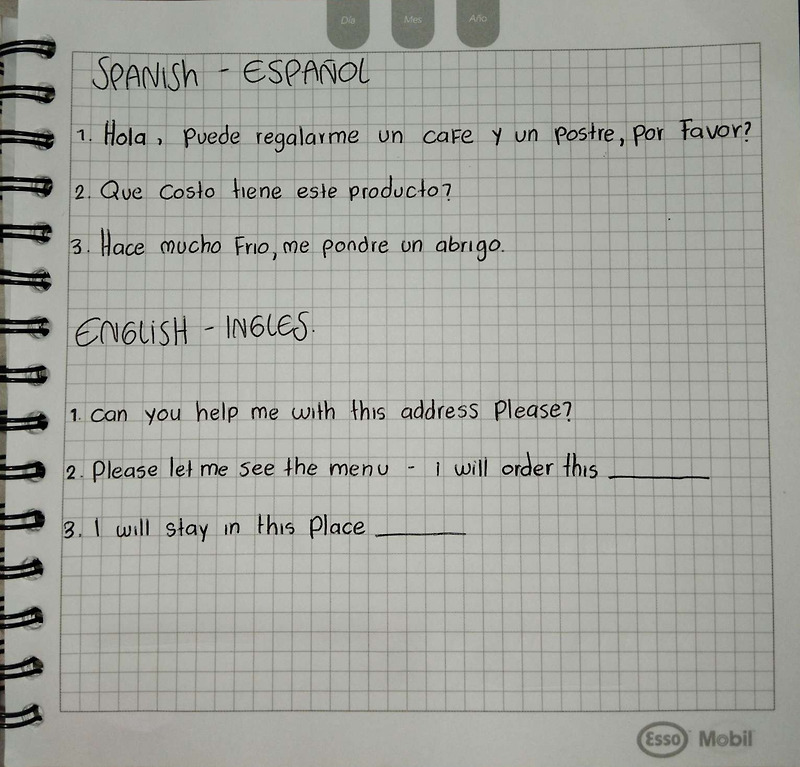 Día Mes Año
SPANISH - ESPAÑOL
1. Hola, puede regalarme un cafe y un postre, por Favor?
2. Que costo tiene este producto?
3. Hace mucho Frio, me pondre un abrigo.
ENGLISH - INGLES.
1. can you help me with this address Please?
2. Please let me see the menu - i will order this ________
3. I will stay in this Place ________
Esso Mobil